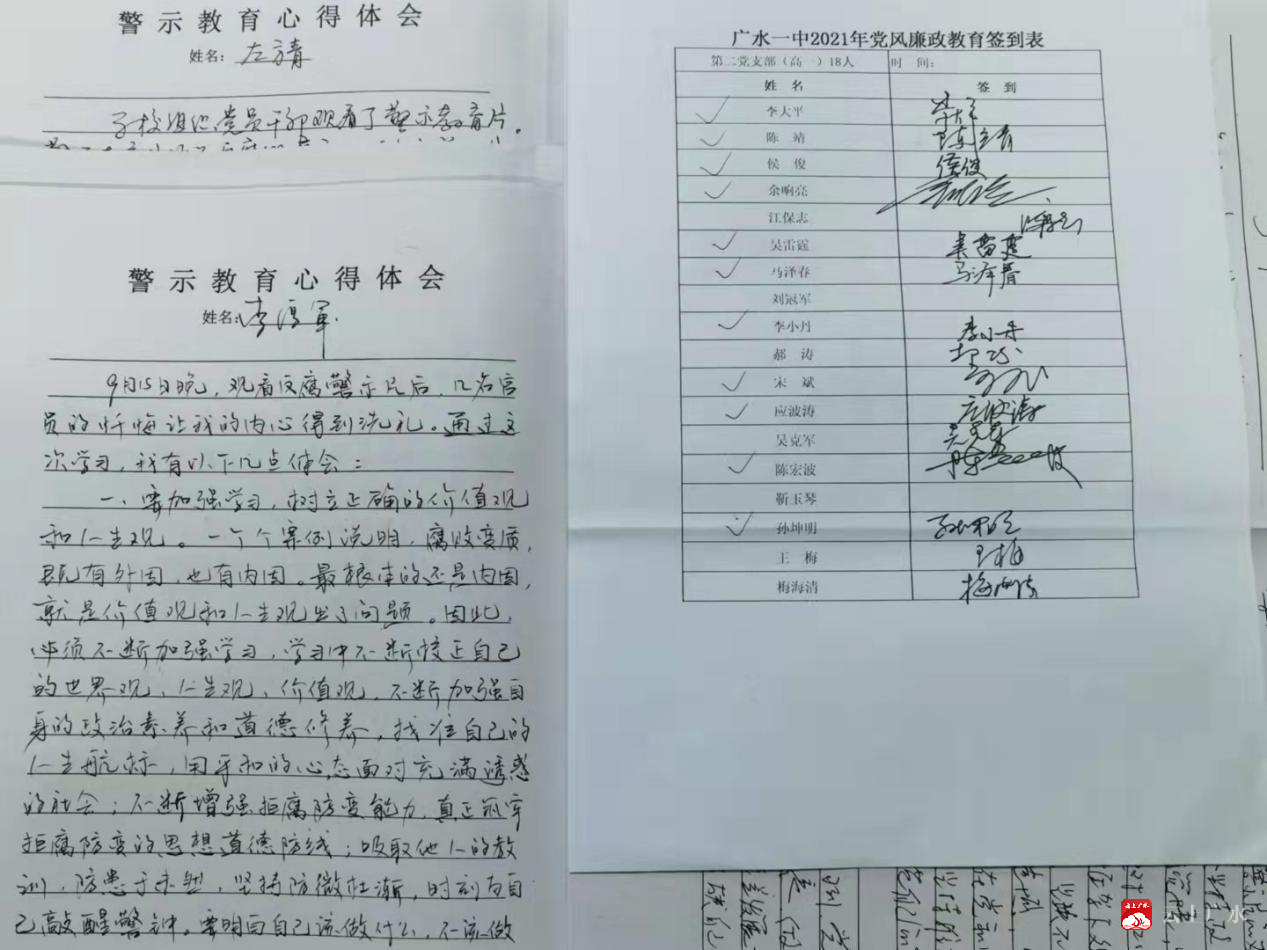 警示教育心得体会
姓名：左靖
学校组织党员干部观看了警示教育片。
警示教育心得体会
姓名：李淳军
9月15日晚，观看反腐警示片后，几名官
员的忏悔让我的内心得到洗礼。通过这
次学习，我有以下几点体会：
一、要加强学习，树立正确的价值观
和人生观。一个个案例说明，腐败变质，
既有外因，也有内因。最根本的还是内因，
就是价值观和人生观出了问题。因此，
必须不断加强学习，学习中不断校正自己
的世界观、人生观、价值观，不断加强自
身的政治素养和道德修养，找准自己的
人生航标，用平和的心态面对充满诱惑
的社会；不断增强拒腐防变能力，真正筑牢
拒腐防变的思想道德防线；吸取他人的教
训，防患于未然，坚持防微杜渐，时刻为自
己敲醒警钟。要明白自己该做什么，不该做
广水一中2021年党风廉政教育签到表
第二党支部（高一）18人 时 间：
姓 名 签 到
李大平
陈 靖 陈靖
侯 俊 侯俊
余响亮
江保志
吴雷霆 吴雷霆
马泽春 马泽春
刘冠军
李小丹 李小丹
郝 涛 郝涛
宋 斌
应波涛 应波涛
吴克军 吴克军
陈宏波 陈宏波
靳玉琴
孙坤明 孙坤明
王 梅 王梅
梅海清 梅海清
云上广水